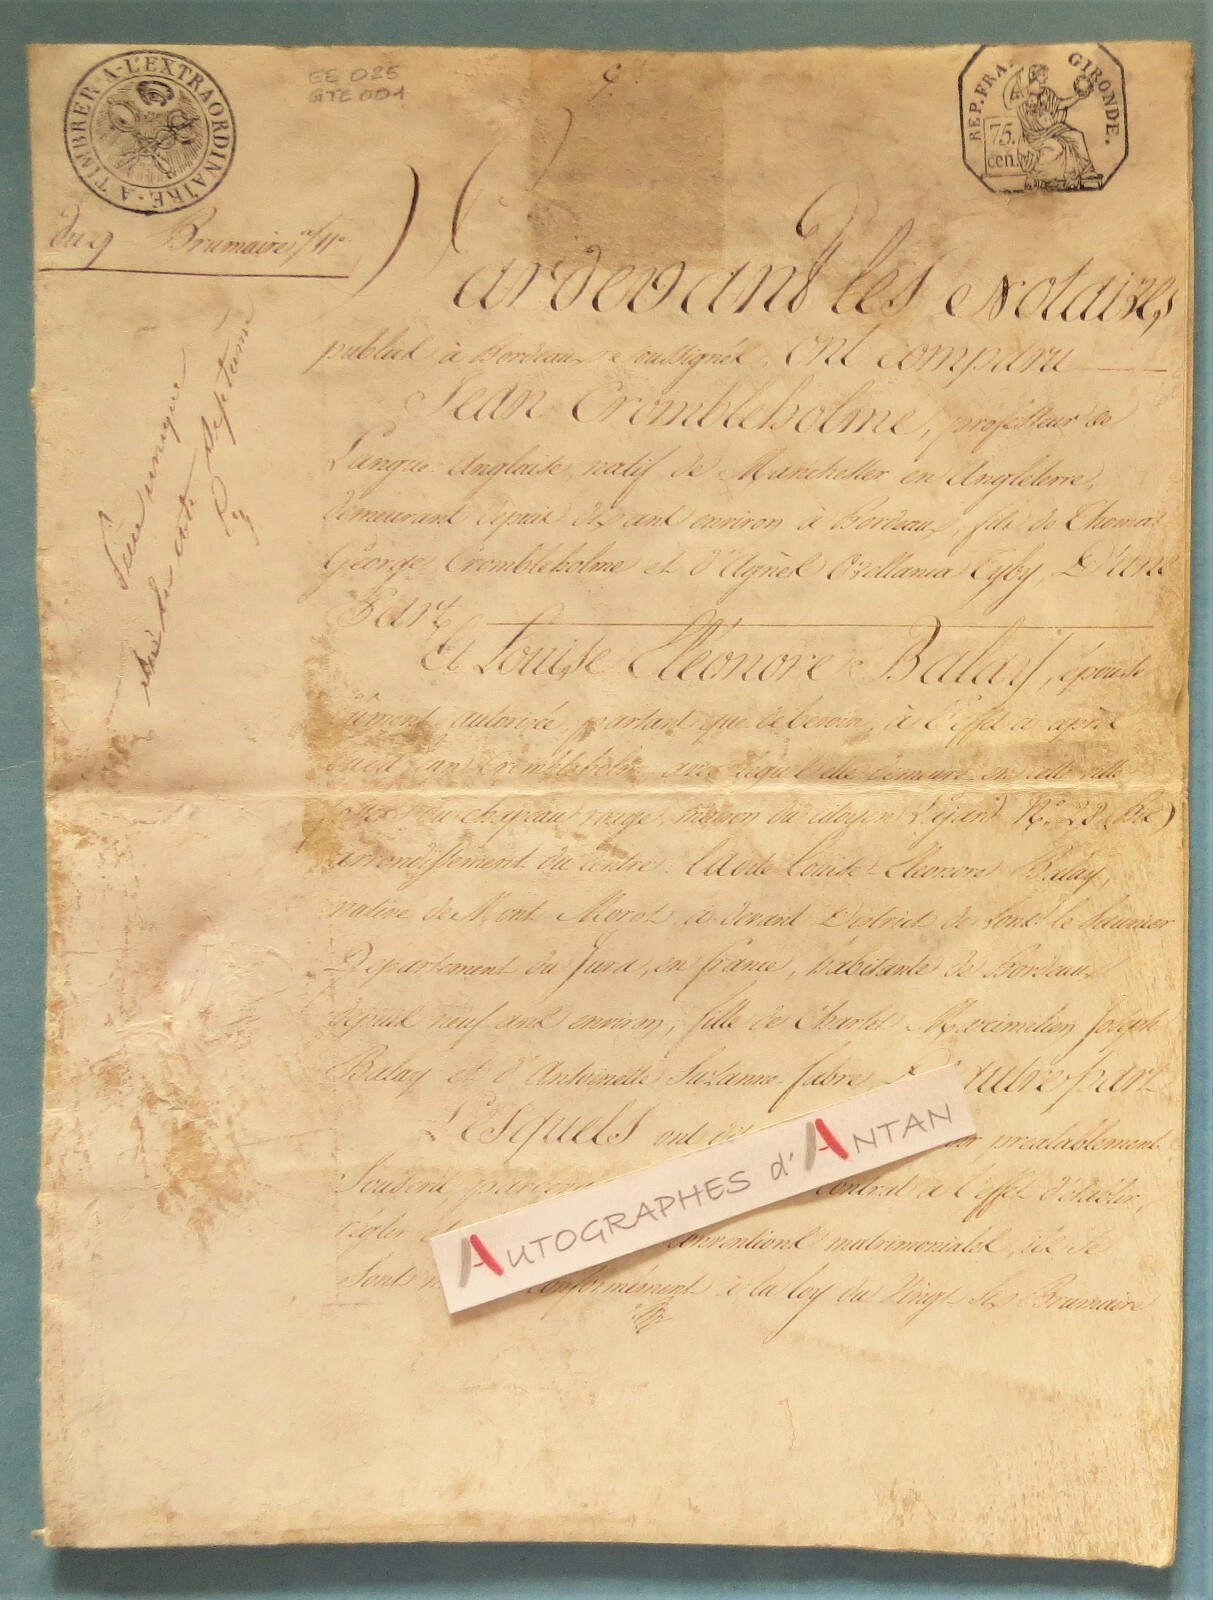 A TIMBRER-A-L'EXTRAORDINAIRE-
EE 025
GTE 001
REP. FRA. GIRONDE.
75.
cen.
Du 9 Brumaire an 11e
Pardevant les Notaires
publics à Bordeaux soussignés, ont comparu
Jean Crombleholme, professeur de
Langue Anglaise, natif de Manchester en Angleterre,
demeurant depuis dix ans environ à Bordeaux, fils de Thomas
George Crombleholme et d'Agnès D'une
Part,
Et Louise Eléonore Balay, épouse
dûment autorisée, partant que de besoin, à l'effet ci après
dudit Jean Crombleholme avec lequel elle demeure en cette ville
du chapeau rouge, maison du citoyen No. 28 (Bis)
arrondissement du centre. Ladite Louise Eleonore Balay,
native de Mont Morot, ci devant District de Lons le Saunier
Département du Jura, en france, habitante de Bordeaux
depuis neuf ans environ, fille de Charles Maximilien Joseph
Balay et d'Antoinette Suzanne fabre, D'autre part
Lesquels ont dit préalablement
Souscrit contrat à l'effet d'établir,
régler et conventions matrimoniales, ils se
sont conformément à la loy du Vingt Six Brumaire
AUTOGRAPHES d'ANTAN